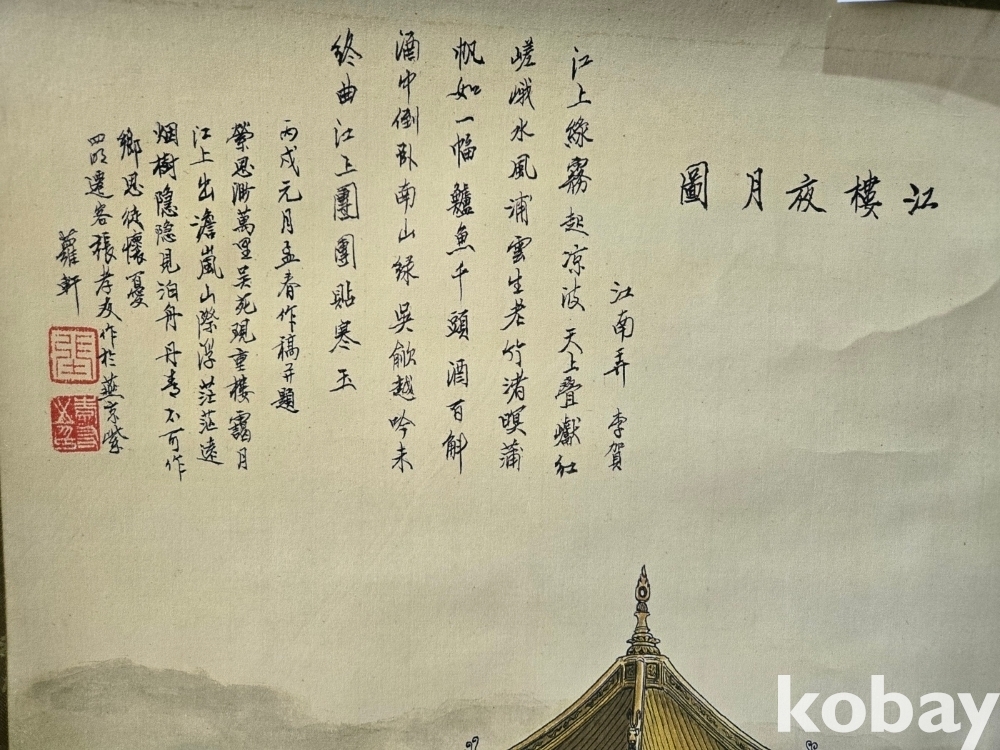 江樓夜月圖
江南弄 李賀
江上綠霧起凉波天上叠巘紅
嵯峨水風浦雲生老竹渚暝蒲
帆如一幅鱸魚千頭酒百斛
酒中倒卧南山綠吳歈越吟未
終曲江上團團貼寒玉
丙戌元月孟春作稿并題
縈思渺萬里吳苑現重樓靄月
江上出澹嵐山際浮茫茫遠
烟樹隠隠見泊舟丹青不可作
鄉思徒懷憂
四明遷客張孝友作於燕京紫
蘿軒
kobay